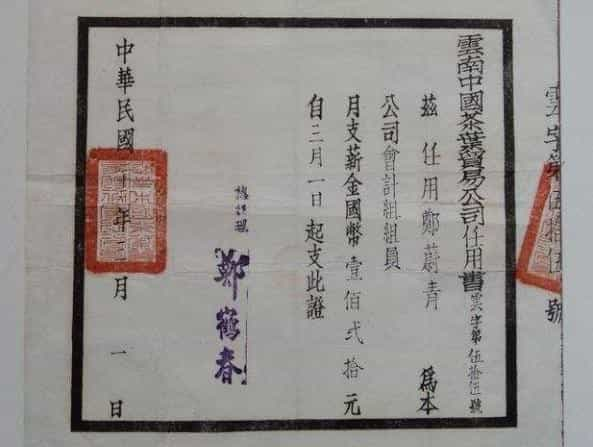 雲字第伍拾伍號
雲南中國茶葉貿易公司任用書雲字第伍拾伍號
茲任用鄭蔚青 爲本
公司會計組組員
月支薪金國幣壹佰弍拾元
自三月一日起支此證
總經理
鄭鶴春
中華民國十年月一日